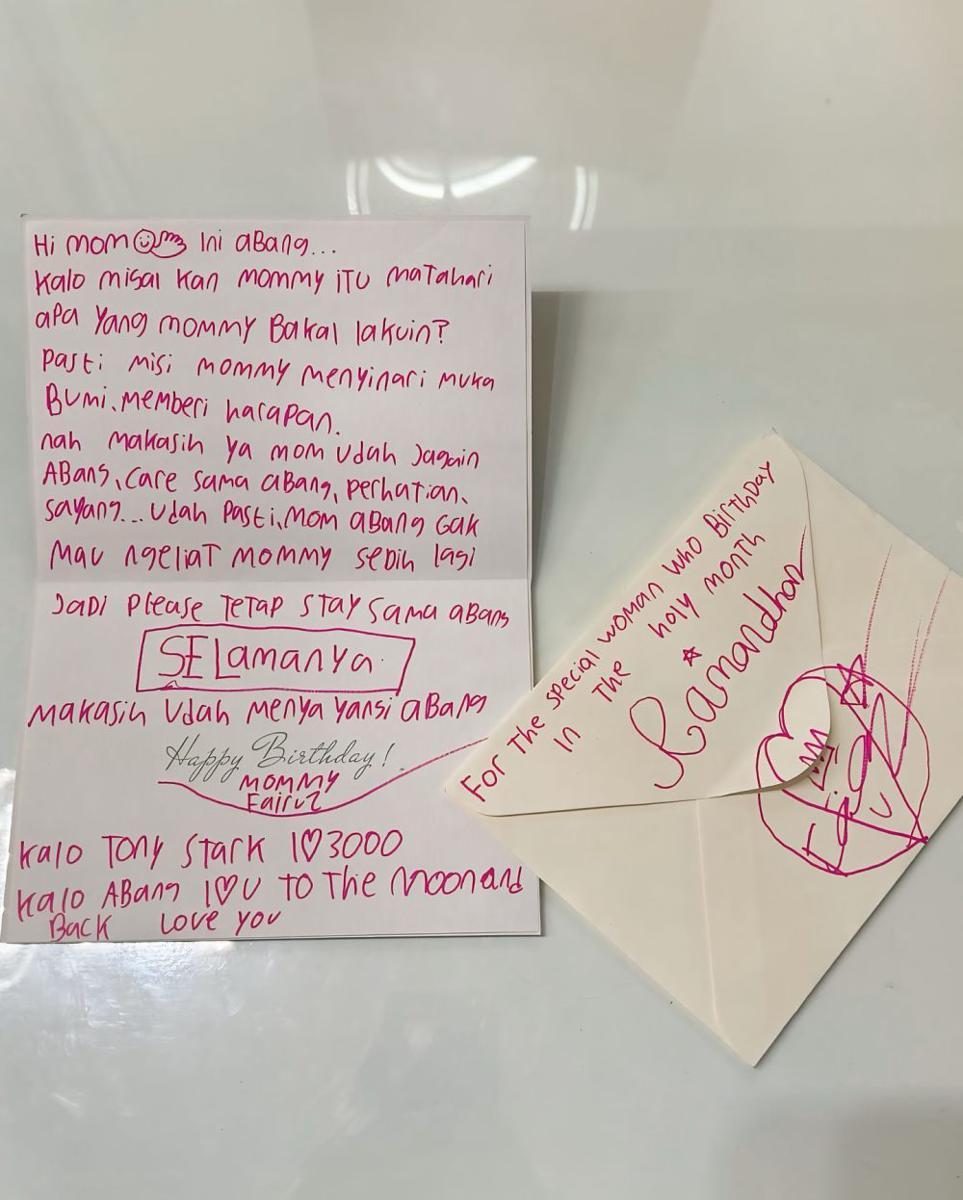 Hi mom Ini aBang...
Kalo misal kan mommy ITU maTahari
apa yang mommy Bakal lakuin?
Pasti misi mommy menyinari muka
Bumi, memberi harapan.
nah makasih ya mom udah Jagain
ABang, care sama aBang, perhatian,
sayang... udah pasti, mom aBang Gak
mau ngeliat mommy sedih lagi
Jadi Please TeTap STay sama aBang
SELamanya
makasih udah menyayangi aBang
Happy Birthday!
mommy
Fairuz
Kalo Tony STark I♡3000
Kalo ABang I♡U To The moon and
Back Love you
For The special woman who BirThday
In The holy monTh
☆
Ramandhan